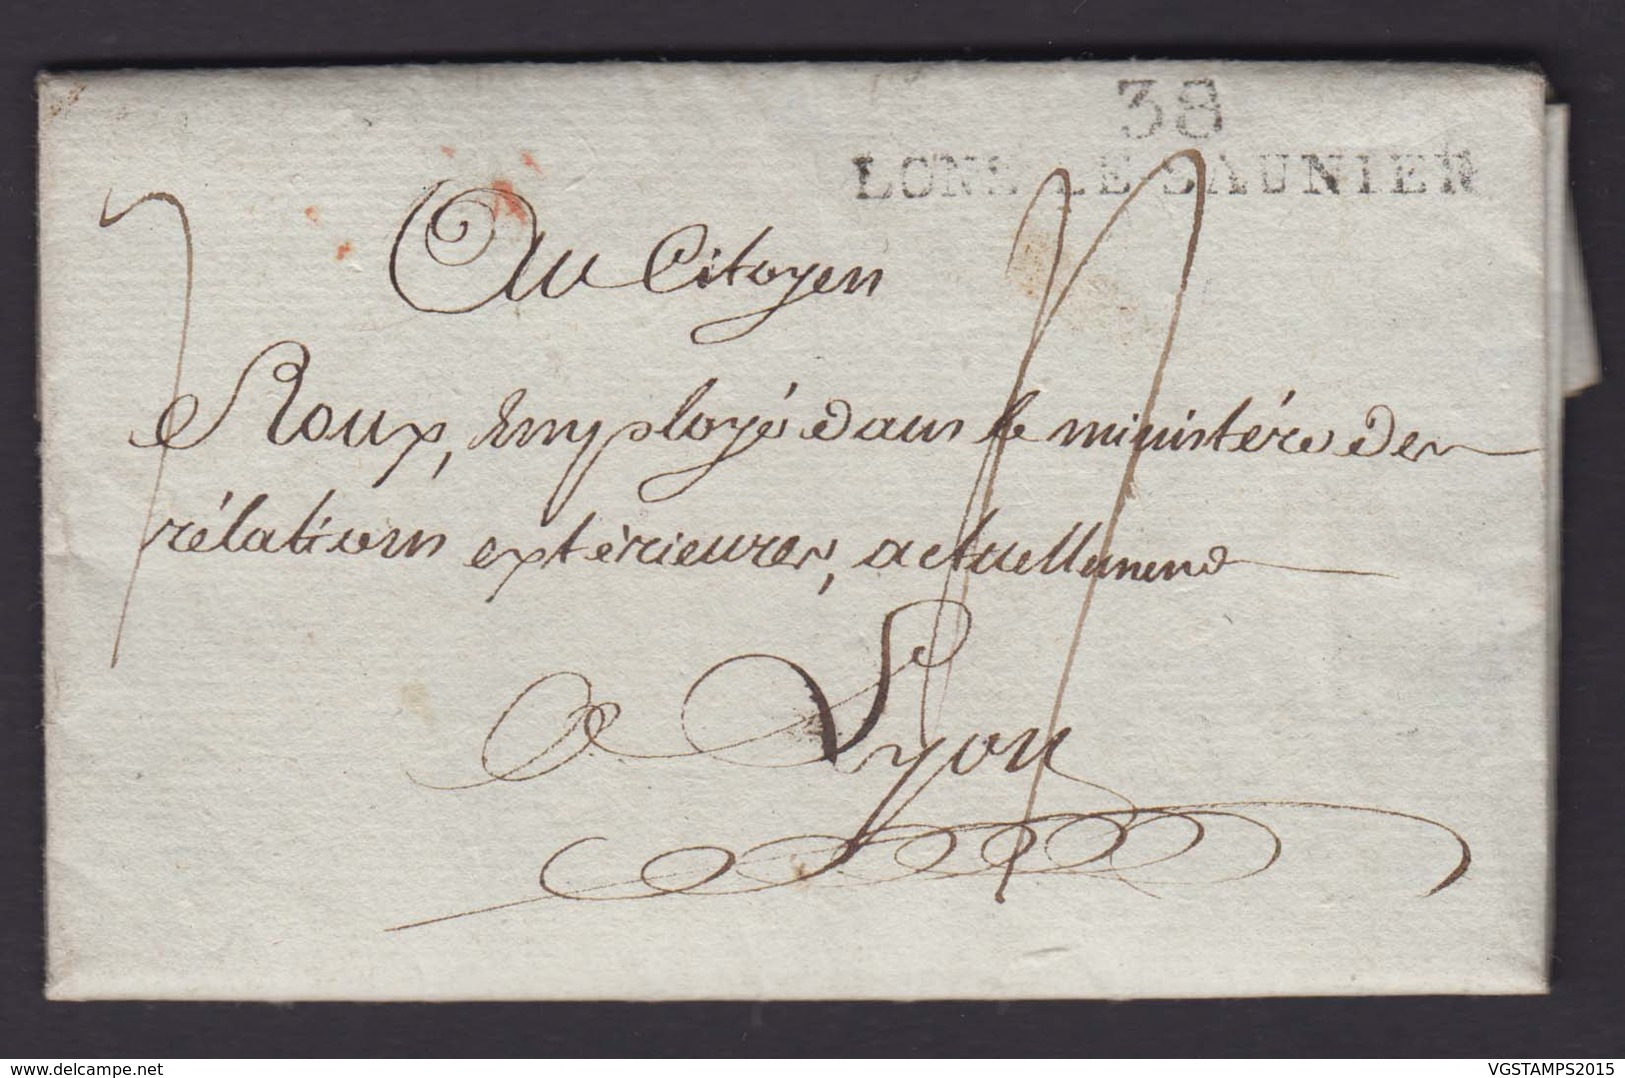 38
LONS-LE-SAUNIER
Au Citoyen
Roux, Employé dans le ministére des
rélations extérieures, actuellement
a Lyon
delcampe.net
VGSTAMPS2015